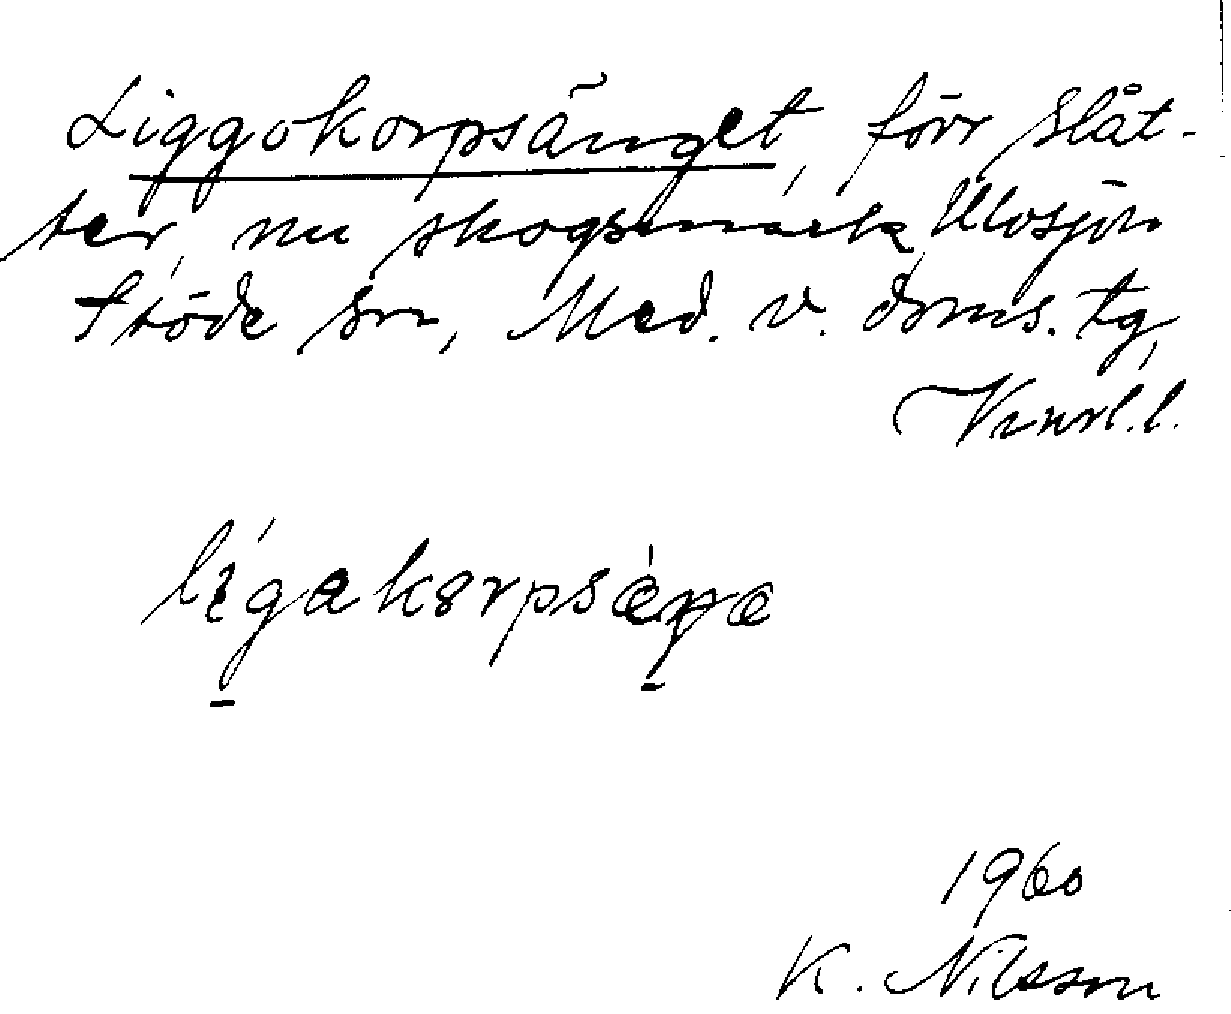 Liggokorpsänget, förr slåt-
ter, nu skogsmark Ulvsjön
Stöde sn, Med. v. doms. tg,
Vnrl.l.
lígakorpsæŋe
1960
K. Nilsson